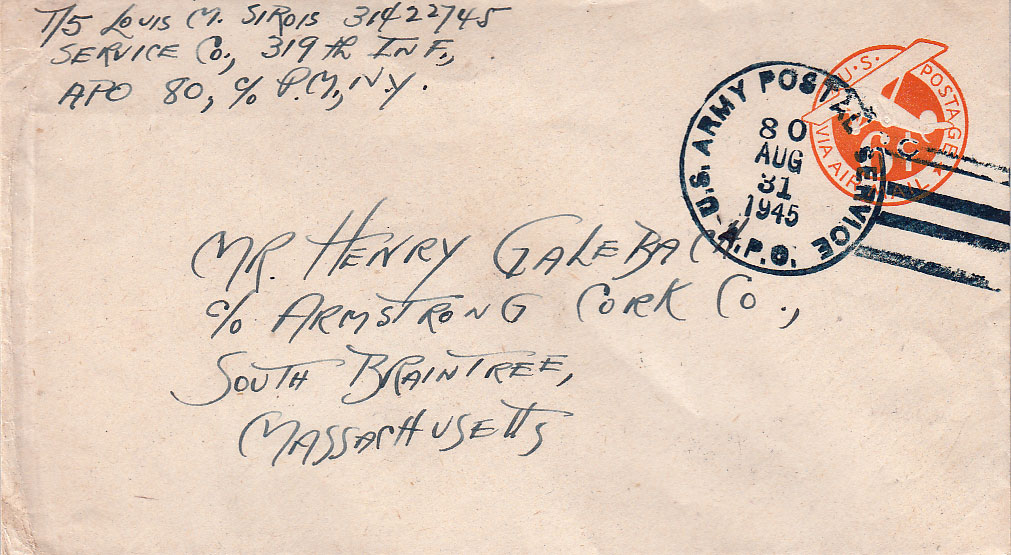 T/5 LOUIS M. SIROIS 31422745
SERVICE CO., 319th INF.,
APO 80, c/o P.M., N.Y.
U.S. POSTAGE
VIA AIR MAIL
U.S. ARMY POSTAL SERVICE
80
AUG
31
1945
A.P.O.
MR. HENRY GALEBACH
c/o ARMSTRONG CORK CO.,
SOUTH BRAINTREE,
MASSACHUSETTS